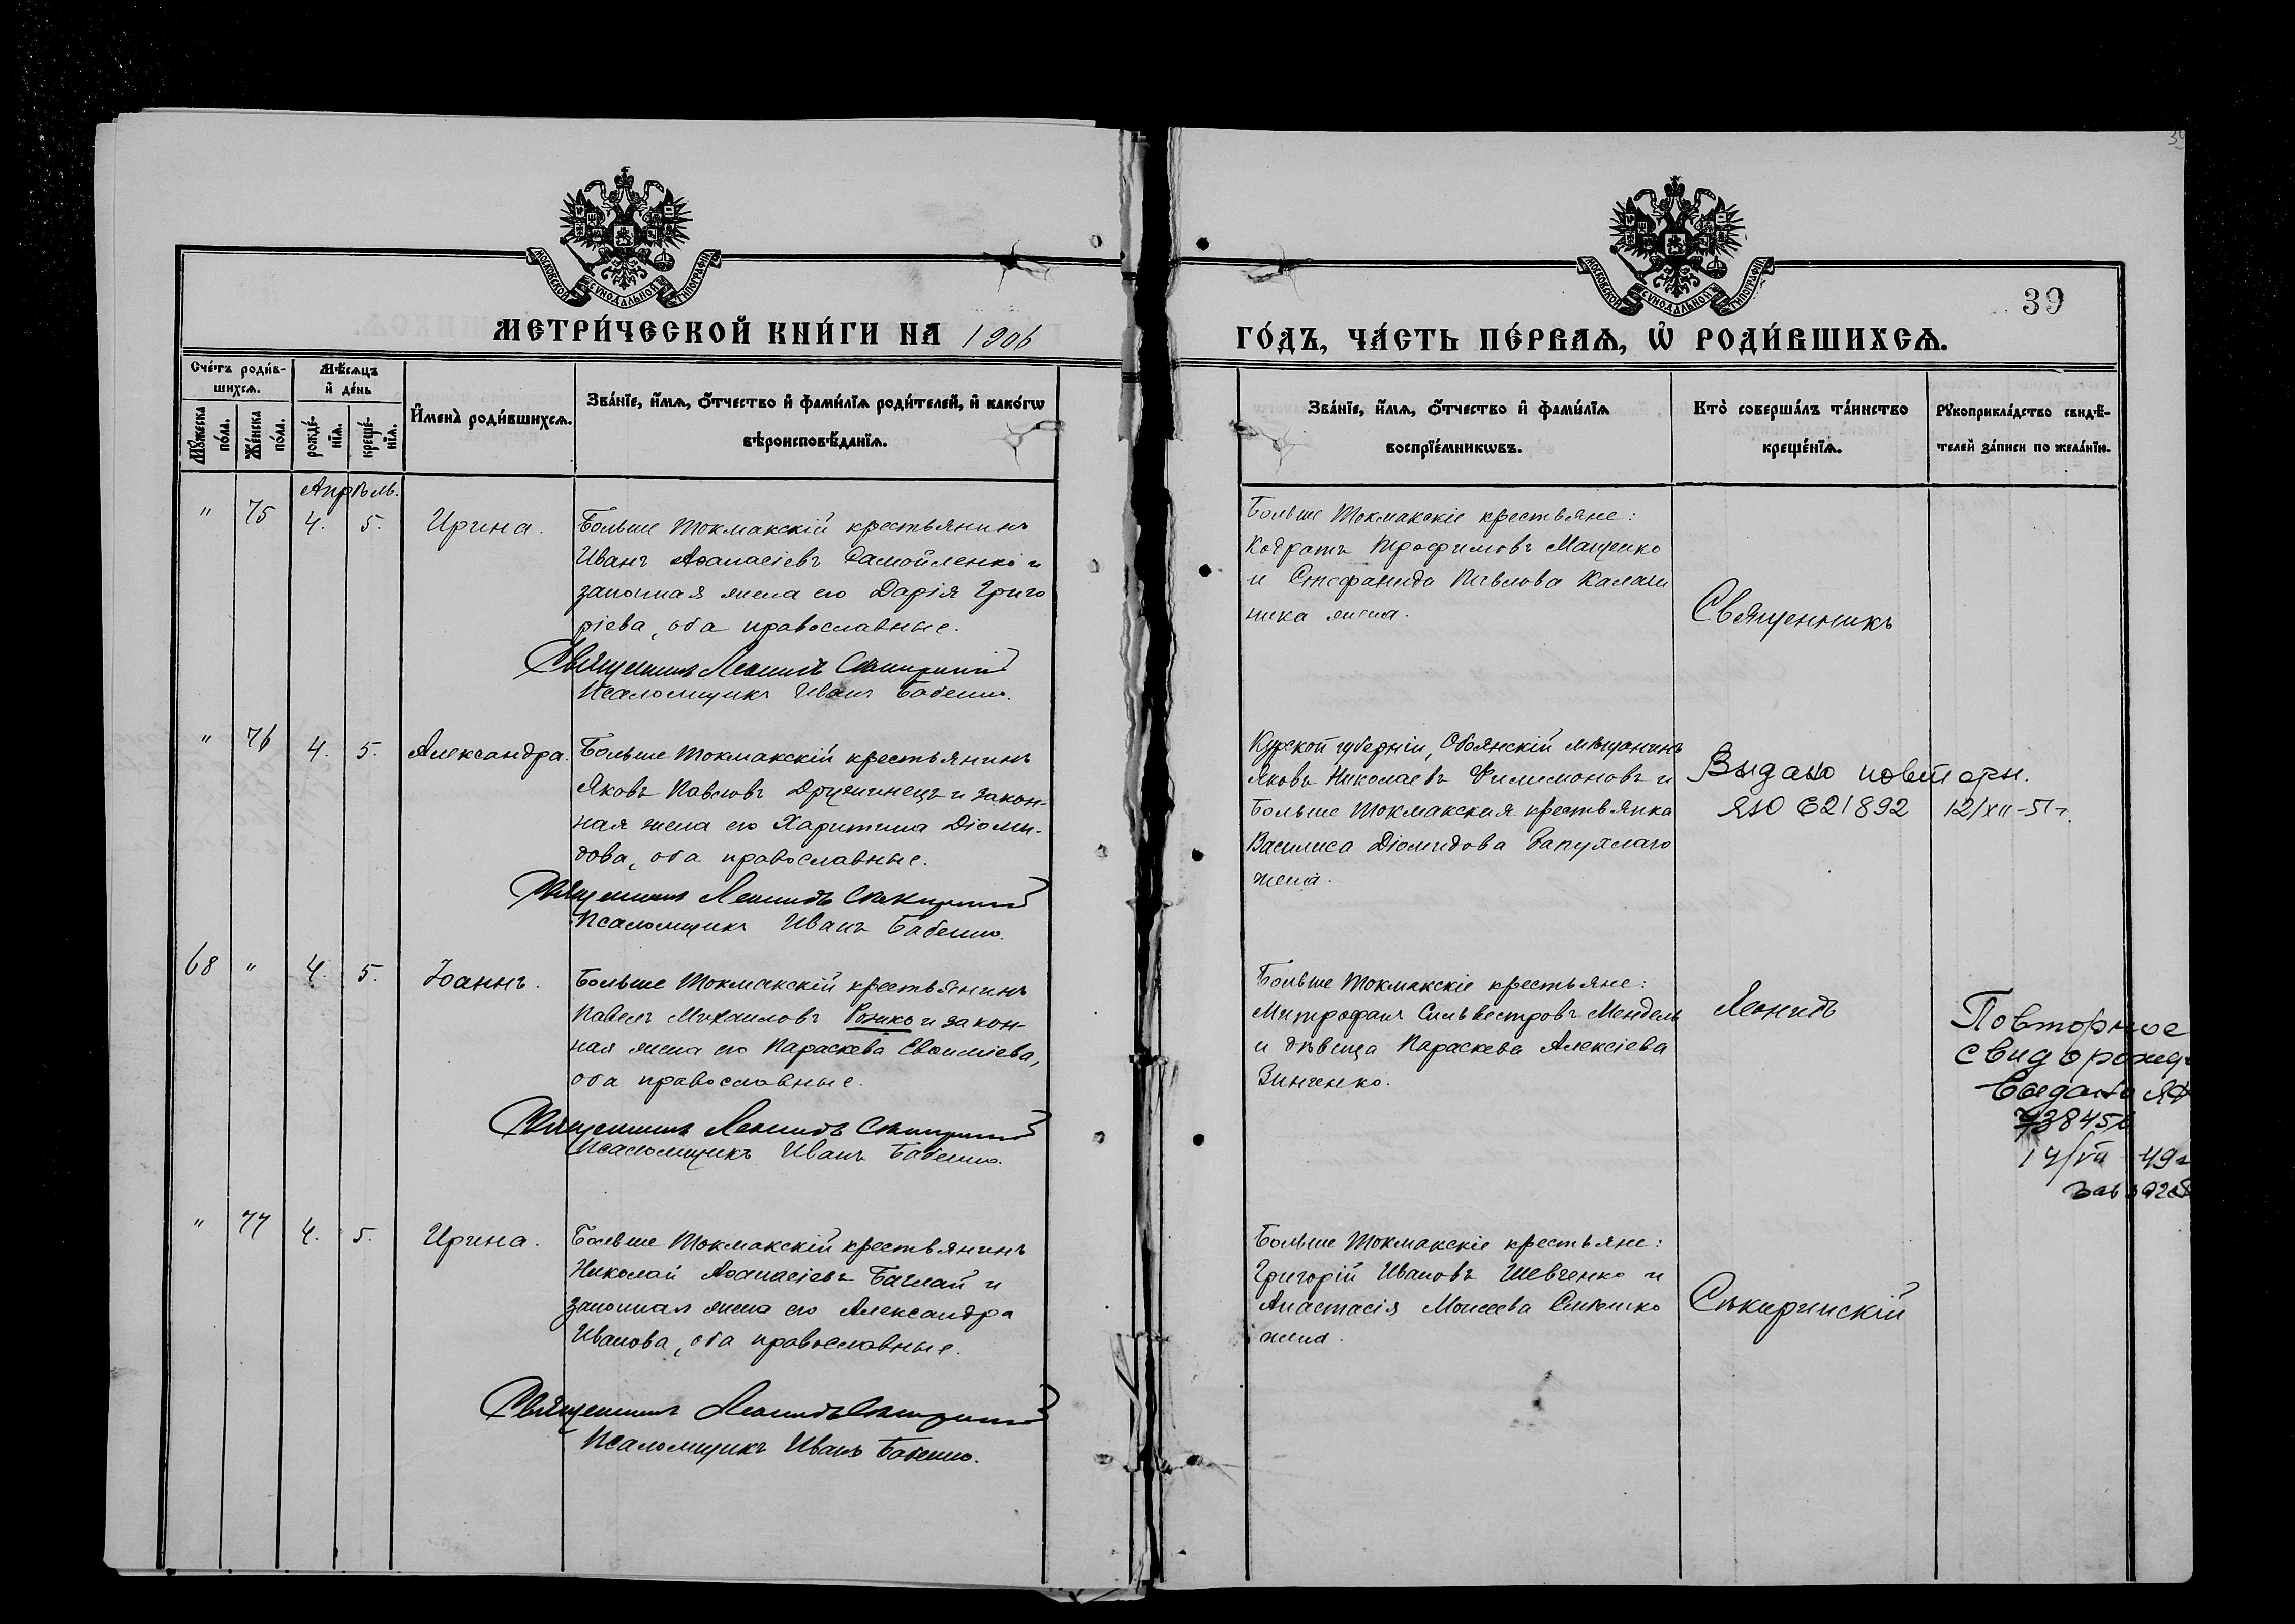 39
МОСКОВСКОЙ СѴНОДАЛЬНОЙ ТИПОГРАФІИ
МОСКОВСКОЙ СѴНОДАЛЬНОЙ ТИПОГРАФІИ
39
МЕТРИ́ЧЕСКОЙ КНИ́ГИ НА 1906
ГО́ДЪ, ЧА́СТЬ ПЕ́РВАѦ, Ѡ҆ РОДИ́ВШИХСѦ.
Сче́тъ роди́в-
шихсѧ.
Мѣ́сѧцъ
и҆ де́нь
Мꙋ́жеска
по́ла.
Же́нска
по́ла.
рожде́-
нїѧ.
креще́-
нїѧ.
И҆мена̀ роди́вшихсѧ.
Зва́нїе, и҆́мѧ, ѻ҆́тчество и҆ фами́лїѧ роди́телей, и҆ како́гѡ
вѣроисповѣ́данїѧ.
Зва́нїе, и҆́мѧ, ѻ҆́тчество и҆ фами́лїѧ
воспрїе́мникѡвъ.
Кто̀ соверша́лъ та́инство
креще́нїѧ.
Рꙋкоприкла́дство свидѣ́-
телей за́писи по жела́нїю.
Апрѣль.
" 75 4. 5. Ирина.
Больше Токмакскій крестьянинъ
Иванъ Аѳанасіевъ Самойленко и
законная жена его Дарія Григо
ріева, оба православные.
Священникъ Леонидъ Сѣкиринскій
Псаломщикъ Иванъ Бабенко.
Больше Токмакскіе крестьяне:
Кодратъ Трофимовъ Мащенко
и Стефанида Павлова Калаш
ника жена.
Священникъ
" 76 4. 5. Александра.
Больше Токмакскій крестьянинъ
Яковъ Павловъ Дружинецъ и закон-
ная жена его Харитина Діоми-
дова, оба православные.
Священникъ Леонидъ Сѣкиринскій
Псаломщикъ Иванъ Бабенко.
Курской губерніи, Обоянскій мѣщанинъ
Яковъ Николаевъ Филимоновъ и
Больше Токмакская крестьянка
Василиса Діомидова
жена.
Выдано повторн.
ЯЮ 621892 12/XII-51г.
68 " 4. 5. Іоаннъ.
Больше Токмакскій крестьянинъ
Павелъ Михаиловъ Розико и закон-
ная жена его Параскева Евѳиміева,
оба православные.
Священникъ Леонидъ Сѣкиринскій
Псаломщикъ Иванъ Бабенко.
Больше Токмакскіе крестьяне:
Митрофанъ Сильвестровъ Мендель
и дѣвица Параскева Алексіева
Зинченко.
Леонидъ
Повторное
свид о рожд
Выдано
14/VII 49г
" 77 4. 5. Ирина.
Больше Токмакскій крестьянинъ
Николай Аѳанасіевъ Баглай и
законная жена его Александра
Иванова, оба православные.
Священникъ Леонидъ Сѣкиринскій
Псаломщикъ Иванъ Бабенко.
Больше Токмакскіе крестьяне:
Григорій Ивановъ Шевченко и
Анастасія Моисеева
жена.
Сѣкиринскій